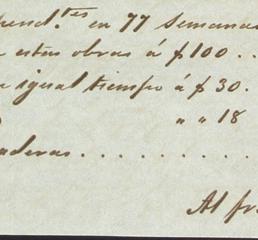 pend.tes en 77 semanas
estas obras á $100 . .
igual tiempo á $ 30.
" " 18
aderas . . . . . . . . . .
Al fr